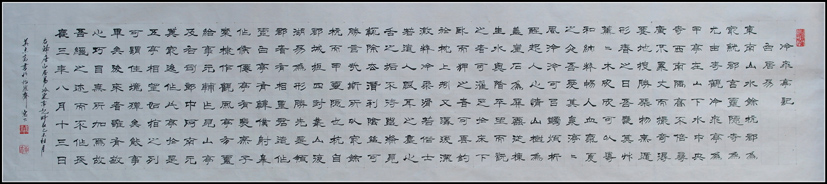 冷泉亭記
白居易
東南山水餘杭郡為
最就郡言靈隱寺為
尤由寺觀冷泉亭為
甲亭在山下水中央
寺西南隅高不倍尋
廣不累丈而撮奇得
要地搜勝概物無遁
形春之日吾愛其草
薰薰木欣欣可以導
和納粹暢人血氣夏
之夜吾愛其泉渟渟
風泠泠可以蠲煩析
酲起人心情山樹為
蓋岩石為屏雲從棟
生水與階平坐而玩
之者可濯足於床下
臥而狎之者可垂釣
於枕上矧又潺湲潔
澈粹冷柔滑若俗士
若道人眼耳之塵心
舌之垢不待盥滌見
輒除去潛利陰益可
勝言哉斯所以最餘
杭而甲靈隱也杭自
郡城抵四封叢山複
湖易為形勝先是領
郡者有相里君造作
虛白亭有韓僕射皋
作候仙亭有裴庶子
棠棣作觀風亭有盧
給事元輔作見山亭
及右司郎中河南元
藇最後作此亭於是
五亭相望如指之列
可謂佳境殫矣能事
畢矣後來者雖有敏
心巧目無所加焉故
吾繼之述而不作長
慶三年八月十三日